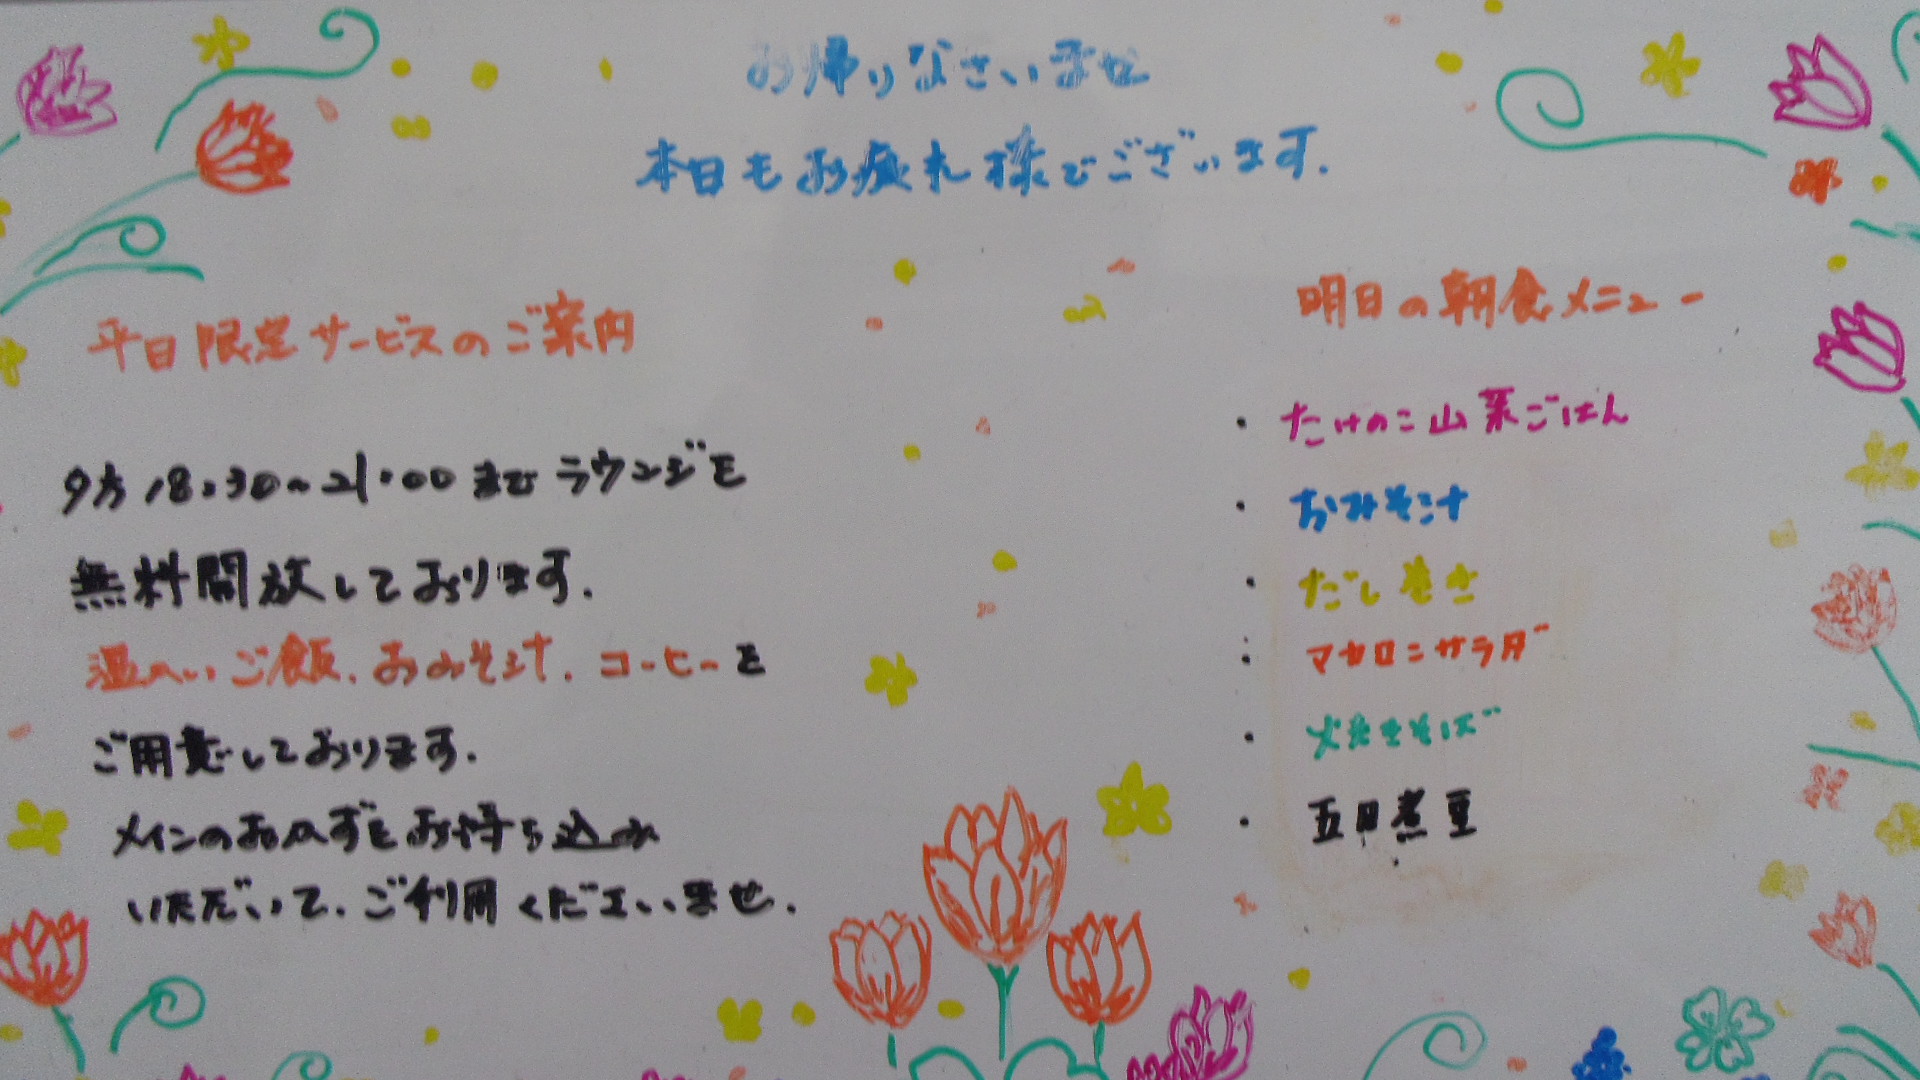 お帰りなさいませ
本日もお疲れ様でございます.
平日限定サービスのご案内
夕方18:30~21:00までラウンジを
無料開放しております.
温かいご飯.おみそ汁.コーヒーを
ご用意しております.
メインのおかずをお持ち込み
いただいて.ご利用くださいませ.
明日の朝食メニュー
・たけのこ山菜ごはん
・おみそ汁
・だし巻き
・マカロニサラダ
・焼きそば
・五目煮豆